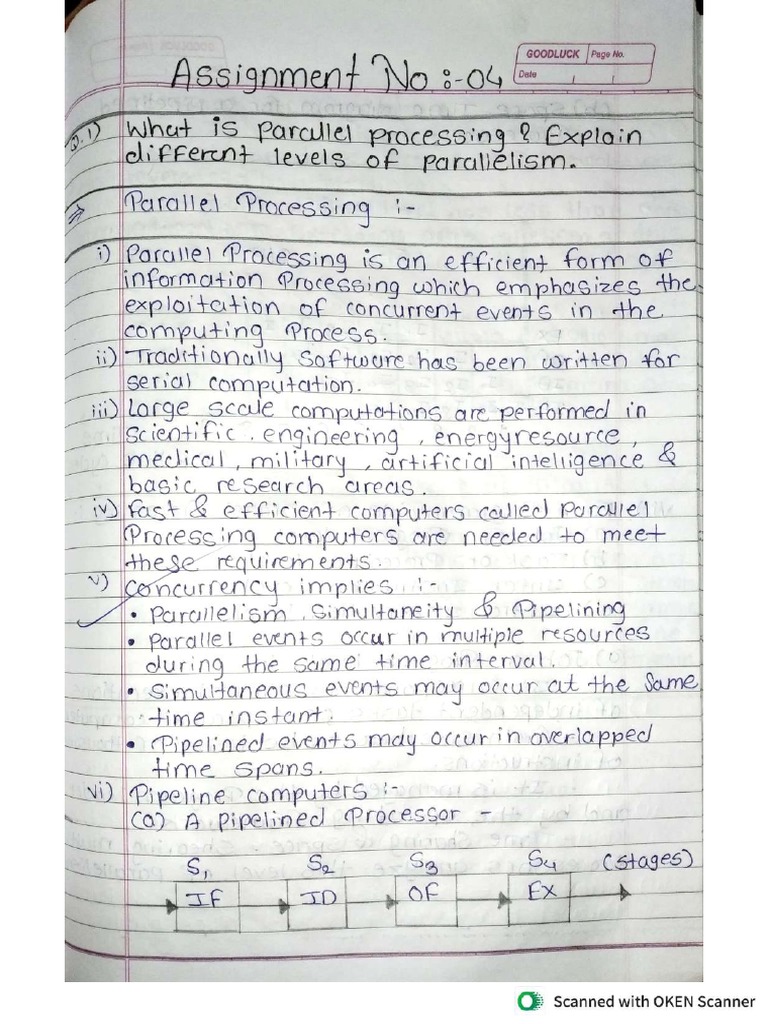 GOODLUCK Page No.
Date
Assignment No :- 04
Q.1) What is parallel processing ? Explain
different levels of parallelism.
⇒ Parallel Processing :-
i) Parallel Processing is an efficient form of
information Processing which emphasizes the
exploitation of concurrent events in the
computing Process.
ii) Traditionally Software has been written for
serial computation.
iii) Large scale computations are performed in
scientific, engineering, energyresource,
medical, military, artificial intelligence &
basic research areas.
iv) Fast & efficient computers called Parallel
Processing computers are needed to meet
these requirements.
v) Concurrency implies :-
• Parallelism, Simultaneity & Pipelining
• Parallel events occur in multiple resources
during the same time interval.
• Simultaneous events may occur at the Same
time instant.
• Pipelined events may occur in overlapped
time spans.
vi) Pipeline computers :-
(a) A Pipelined Processor -
S1 S2 S3 S4 (stages)
IF ID OF EX
Scanned with OKEN Scanner